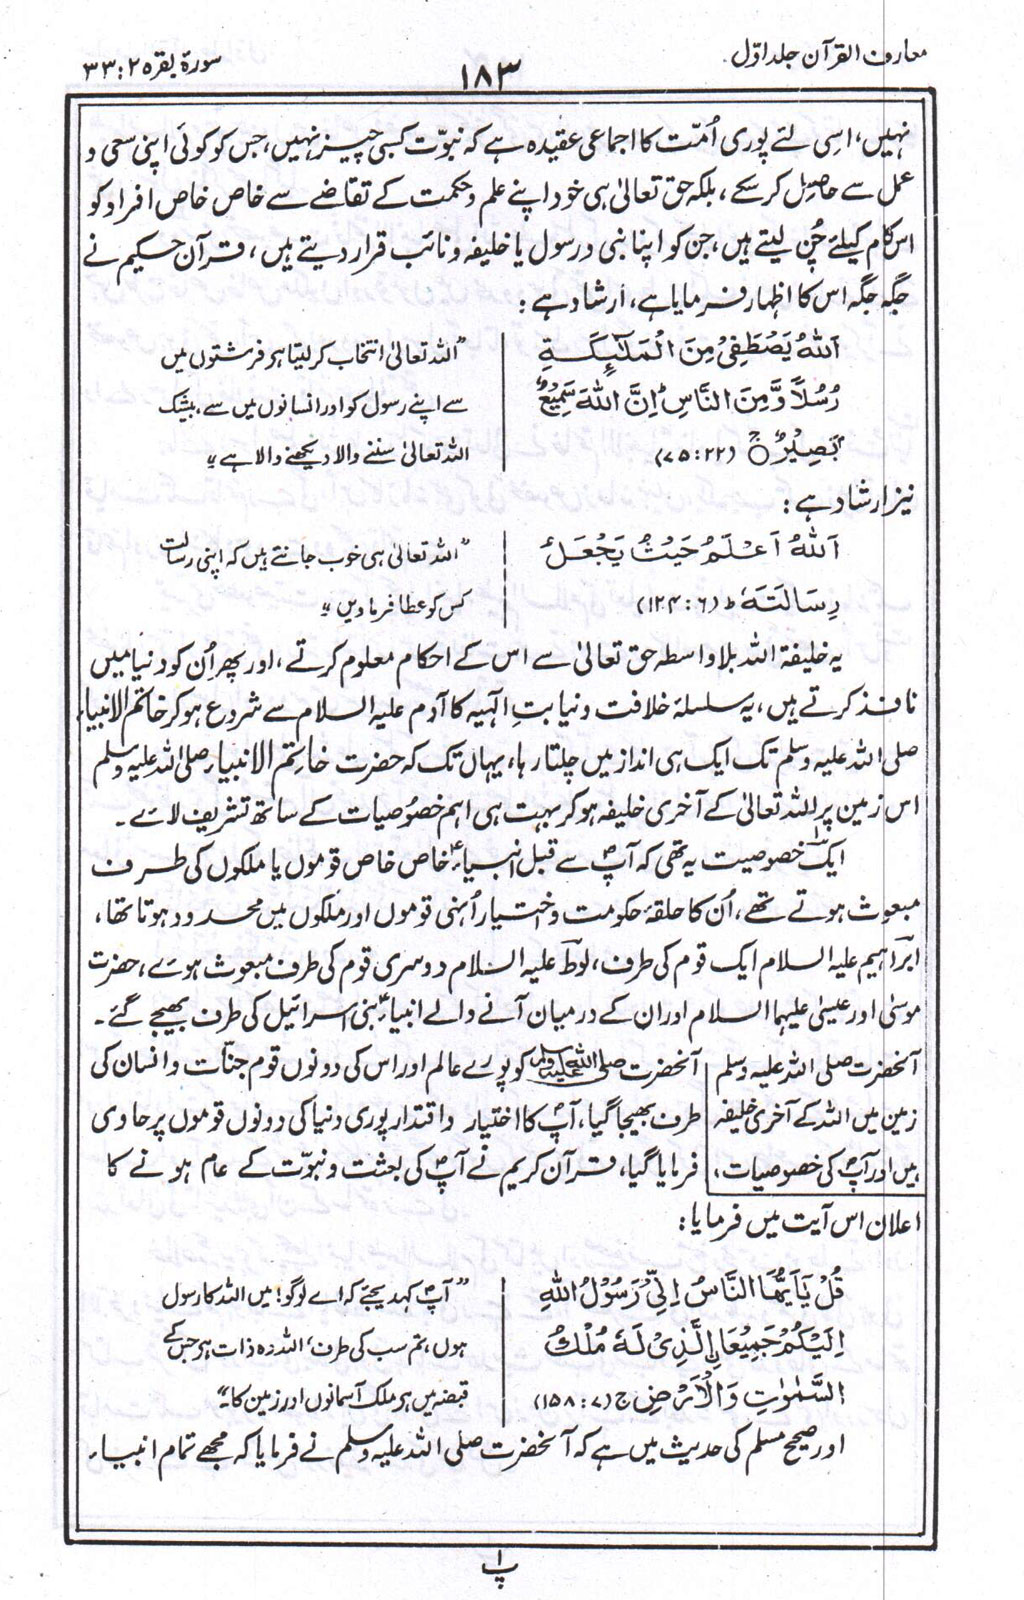 معارف القرآن جلد اوّل
۱۸۳
سورۂ بقرہ ۲ : ۳۳
نہیں، اسی لئے پوری اُمّت کا اجماعی عقیدہ ہے کہ نبوّت کسبی چیز نہیں، جس کو کوئی اپنی سعی و
عمل سے حاصل کرسکے، بلکہ حق تعالیٰ ہی خود اپنے علم و حکمت کے تقاضے سے خاص خاص افراد کو
اس کام کیلئے چُن لیتے ہیں، جن کو اپنا نبی و رسول یا خلیفہ و نائب قرار دیتے ہیں، قرآن حکیم نے
جگہ جگہ اس کا اظہار فرمایا ہے، ارشاد ہے :
اَللهُ يَصْطَفِيْ مِنَ الْمَلٰٓئِكَةِ
رُسُلًا وَّمِنَ النَّاسِ اِنَّ اللهَ سَمِيْعٌۢ
بَصِيْرٌ (۲۲ : ۷۵)
”اللہ تعالیٰ انتخاب کرلیتا ہر فرشتوں میں
سے اپنے رسول کو اور انسانوں میں سے، بیشک
اللہ تعالیٰ سننے والا دیکھنے والا ہے“
نیز ارشاد ہے :
اَللهُ اَعْلَمُ حَيْثُ يَجْعَلُ
رِسَالَتَهٗ ط (۶ : ۱۲۴)
”اللہ تعالیٰ ہی خوب جانتے ہیں کہ اپنی رسالت
کس کو عطا فرمادیں“
یہ خلیفۃ اللہ بلاواسطہ حق تعالیٰ سے اس کے احکام معلوم کرتے، اور پھر اُن کو دنیا میں
نافذ کرتے ہیں، یہ سلسلۂ خلافت و نیابتِ الٰہیہ کا آدم علیہ السلام سے شروع ہو کر خاتم الانبیاء
صلی اللہ علیہ وسلم تک ایک ہی انداز میں چلتا رہا، یہاں تک کہ حضرت خاتم الانبیاء صلی اللہ علیہ وسلم
اس زمین پر اللہ تعالیٰ کے آخری خلیفہ ہو کر بہت ہی اہم خصوصیات کے ساتھ تشریف لائے۔
ایک خصوصیت یہ تھی کہ آپؐ سے قبل انبیاءؑ خاص خاص قوموں یا ملکوں کی طرف
مبعوث ہوتے تھے، اُن کا حلقۂ حکومت و اختیار اُنہی قوموں اور ملکوں میں محدود ہوتا تھا،
ابراہیم علیہ السلام ایک قوم کی طرف، لوط علیہ السلام دوسری قوم کی طرف مبعوث ہوئے، حضرت
موسیٰ اور عیسیٰ علیہما السلام اور ان کے درمیان آنے والے انبیاءؑ بنی اسرائیل کی طرف بھیجے گئے۔
آنحضرت صلی اللہ علیہ وسلم
زمین میں اللہ کے آخری خلیفہ
ہیں اور آپؐ کی خصوصیات،
آنحضرت صلی اللہ علیہ وسلم کو پورے عالم اور اس کی دونوں قوم جنّات و انسان کی
طرف بھیجا گیا، آپؐ کا اختیار و اقتدار پوری دنیا کی دونوں قوموں پر حاوی
فرمایا گیا، قرآن کریم نے آپؐ کی بعثت و نبوّت کے عام ہونے کا
اعلان اس آیت میں فرمایا :
قُلْ يٰٓاَيُّهَا النَّاسُ اِنِّيْ رَسُوْلُ اللهِ
اِلَيْكُمْ جَمِيْعًا اِلَّذِيْ لَهٗ مُلْكُ
السَّمٰوٰتِ وَالْاَرْضِ ج (۷ : ۱۵۸)
”آپؐ کہہ دیجئے کہ اے لوگو! میں اللہ کا رسول
ہوں، تم سب کی طرف، اللہ وہ ذات ہر جس کے
قبضہ میں ہر ملک آسمانوں اور زمین کا۔“
اور صحیح مسلم کی حدیث میں ہے کہ آنحضرت صلی اللہ علیہ وسلم نے فرمایا کہ مجھے تمام انبیاء
پ ۱